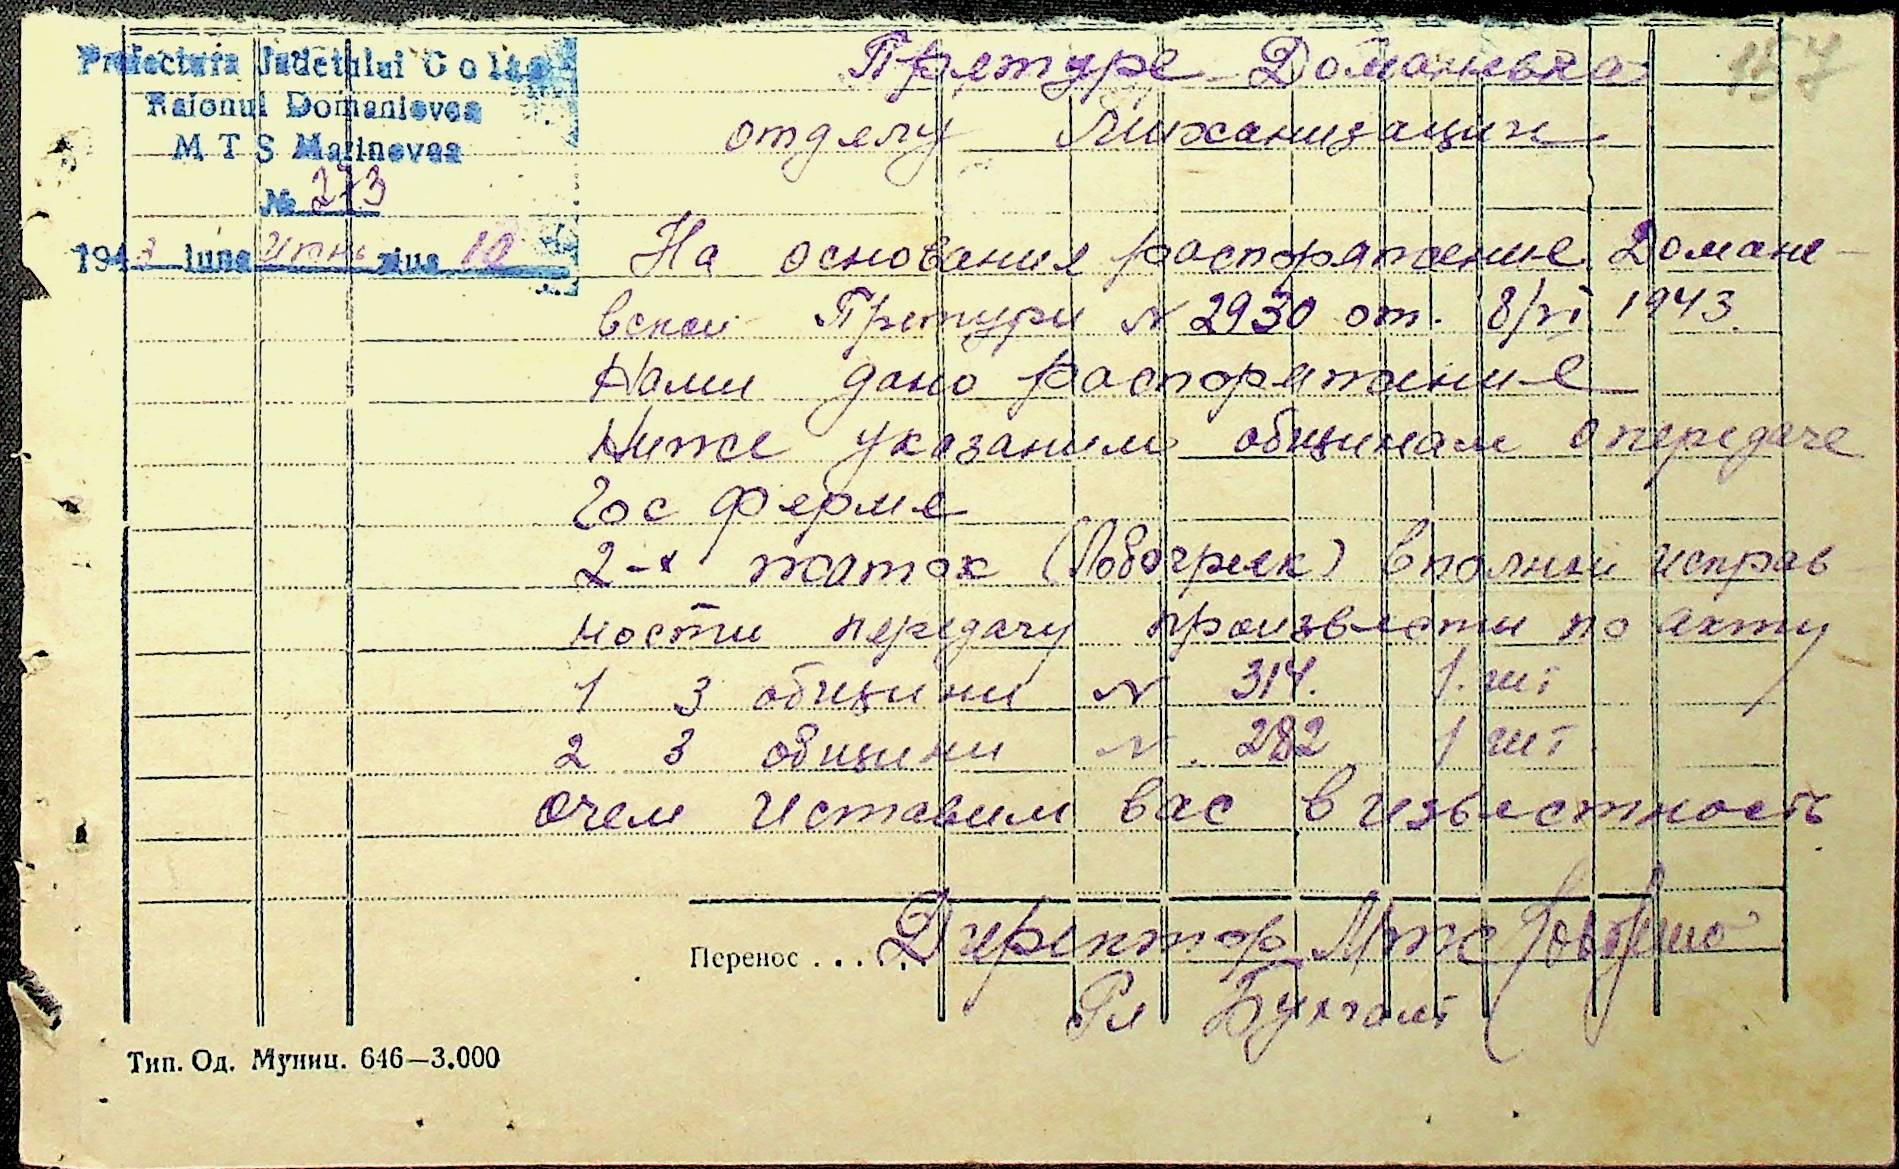 157
Prefectura Judetului Golta
Raionul Domanievca
M T S Marinovca
№ 273
1943 luna июнь ziua 10
Претуре Домановка
отделу Миханизации
На основания распоряжение Домане-
вской Претури № 2930 от. 8/VI 1943.
Нами дано распоряжение
Ниже указаним общинам о передаче
Гос ферме
2-х жаток (Лобогреек) в полной исправ
ности передачу произвести по акту
1 3 общини № 314. 1. шт
2 3 общини № 282 1 шт
Очем иставим вас в известность
Директор Мтс
Перенос . . . . .
Гл Бухгалт
Тип. Од. Муниц. 646—3.000